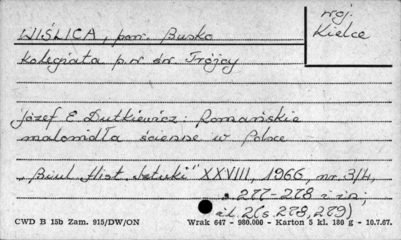 WIŚLICA, pow. Busko
woj.
Kielce
Kolegiata p.w. św. Trójcy
Józef E. Dutkiewicz: Romańskie
malowidła ścienne w Polsce
"Biul. Hist. Sztuki" XXVIII, 1966, nr. 3/4,
s. 277-278 i in;
il. 2 (s. 278, 279)
CWD B 15b Zam. 915/DW/ON Wrak 647 - 980.000 - Karton 5 kl. 180 g - 10.7.67.